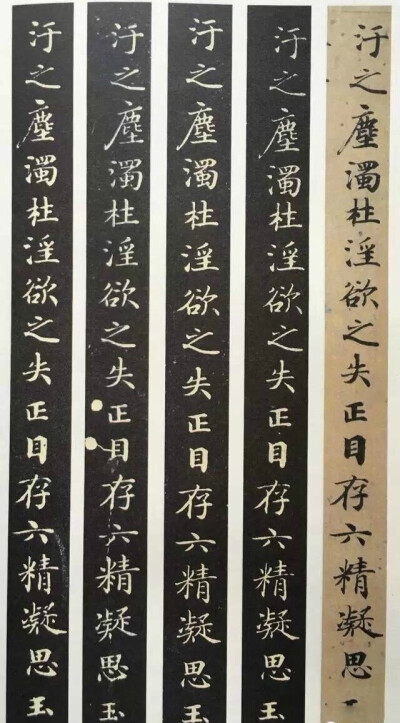 汙之塵濁杜淫欲之失正目存六精凝思
汙之塵濁杜淫欲之失正目存六精凝思玉
汙之塵濁杜淫欲之失正目存六精凝思玉
汙之塵濁杜淫欲之失正目存六精凝思玉
汙之塵濁杜淫欲之失正目存六精凝思玉